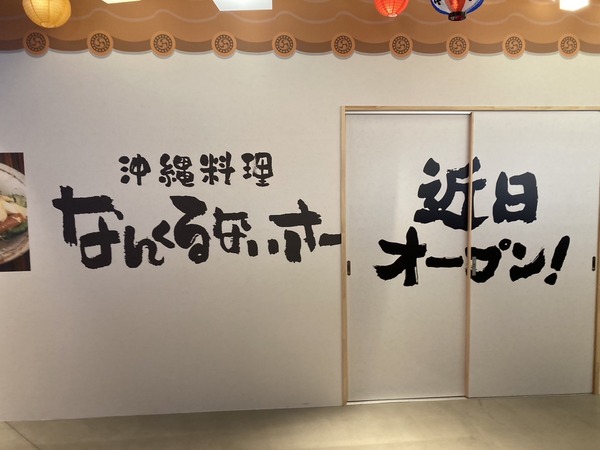 沖縄料理
なんくるないさー
近日
オープン!